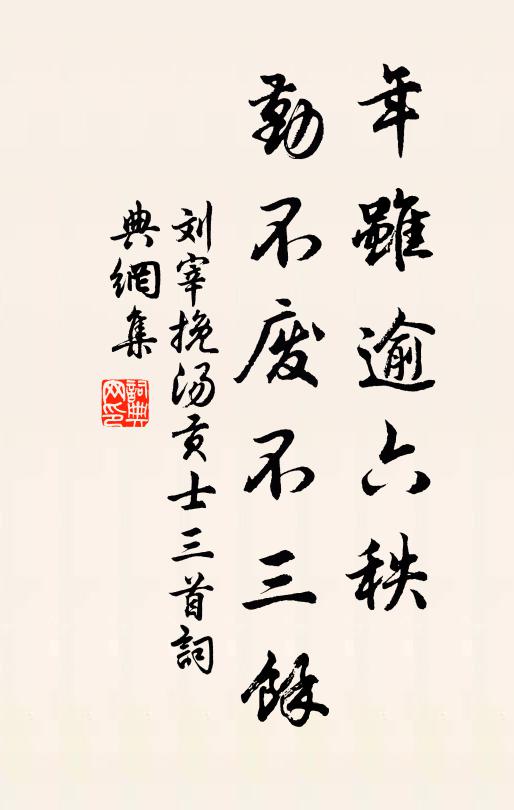 年雖逾六秩
勤不废不三餘
刘宰挽汤贡士三首詞
典網集
詞典網印